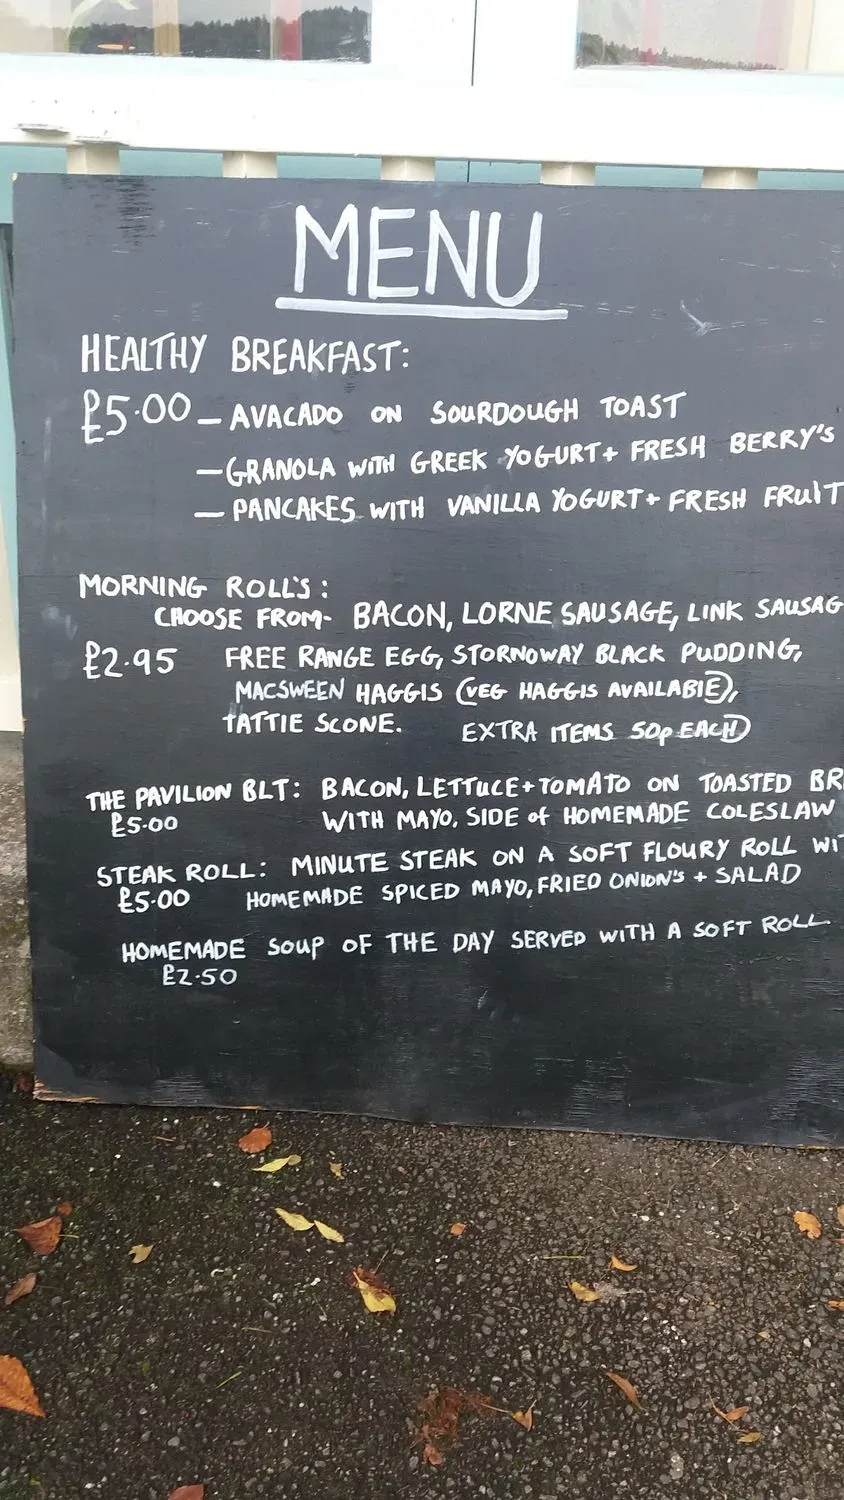 MENU
HEALTHY BREAKFAST:
£5.00 – AVACADO ON SOURDOUGH TOAST
– GRANOLA WITH GREEK YOGURT + FRESH BERRY'S
– PANCAKES WITH VANILLA YOGURT + FRESH FRUIT
MORNING ROLL'S:
CHOOSE FROM- BACON, LORNE SAUSAGE, LINK SAUSAG
£2.95 FREE RANGE EGG, STORNOWAY BLACK PUDDING,
MACSWEEN HAGGIS (VEG HAGGIS AVAILABLE),
TATTIE SCONE. EXTRA ITEMS 50p EACH)
THE PAVILION BLT: BACON, LETTUCE + TOMATO ON TOASTED BR
£5.00 WITH MAYO. SIDE of HOMEMADE COLESLAW
STEAK ROLL: MINUTE STEAK ON A SOFT FLOURY ROLL WIT
£5.00 HOMEMADE SPICED MAYO, FRIED ONION'S + SALAD
HOMEMADE SOUP OF THE DAY SERVED WITH A SOFT ROLL
£2.50